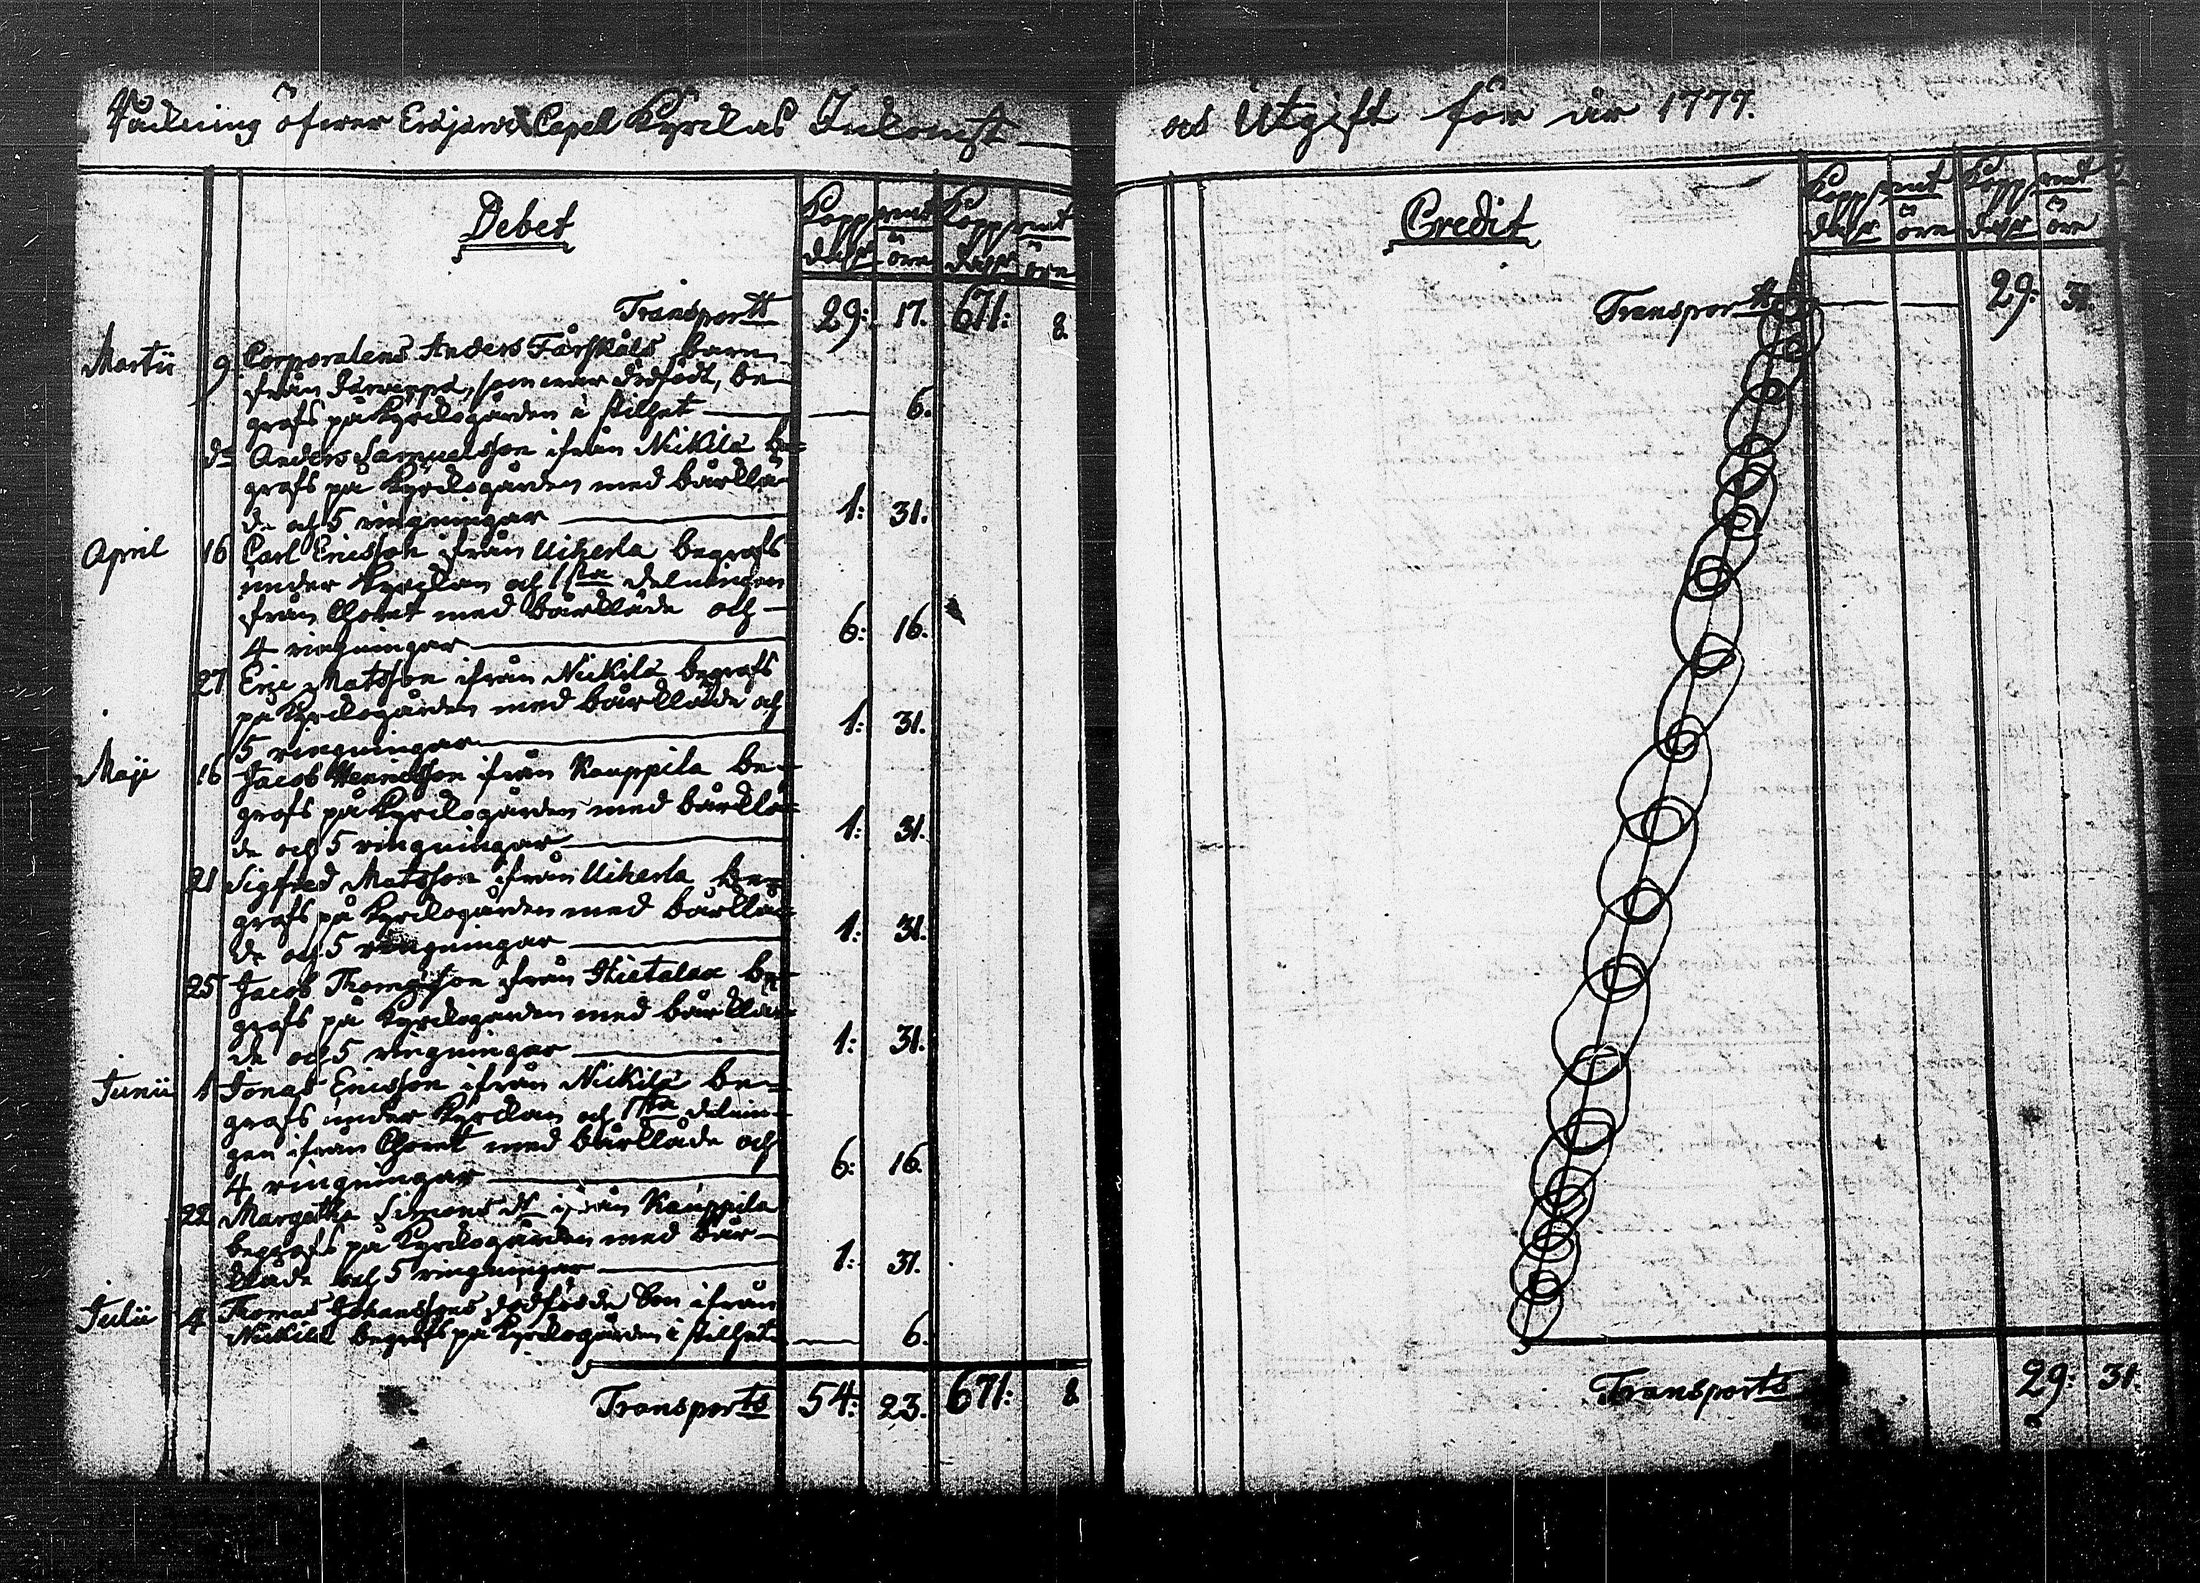 Räkning öfwer Eräjerwi Capel Kyrckas Inkomst
Debet
Kopp rmt Kopp rmt
dahlr öre dahlr öre
Transportt 29: 17. 671: 8.
Martii 9. Corporalens Anders Fårskåls barn
från , som war dödfödt, be-
grofs på Kyrckogården i stilhet — 6.
do Anders Samuelsson ifrån Nickilä be-
grofs på Kyrckogården med bårklä-
de och 5 ringningar 1: 31.
April 16 Carl Ericsson ifrån Uiherla begrofs
under Kyrckan och 1sta delningen
från Choret med bårkläde och
4 ringningar 6: 16.
27 Eric Matsson ifrån Nickilä begrofs
på Kyrckogården med bårkläde och
5 ringningar 1: 31.
Maji 16 Jacob Henricsson ifrån Kauppila be-
grofs på Kyrckogården med bårklä-
de och 5 ringningar 1: 31.
21 Sigfred Matsson ifrån Uiherla be-
grofs på Kyrckogården med bårklä-
de och 5 ringningar 1: 31.
25 Jacob Thomasson från Hietalax be-
grofs på Kyrckogården med bårklä-
de och 5 ringningar 1: 31.
Junii 1 Jonas Ericsson ifrån Nickilä be-
grofs under Kyrckan och 1sta delnin-
gen ifrån Choret med bårkläde och
4 ringningar 6: 16.
22 Margetha Simons dr ifrån Kauppila
begrofs på Kyrckogården med bår-
kläde och 5 ringningar 1: 31.
Julii 4 Thomas Johanssons dödfödde Son ifrån
Nickilä begrofs på Kyrckogården i stilhet — 6.
Transports 54: 23. 671: 8
och Utgift för år 1777.
Credit
Kopp rmt Kopp rmt
dahlr öre dahlr öre
Transportt — — 29: 31.
Transports 29: 31.